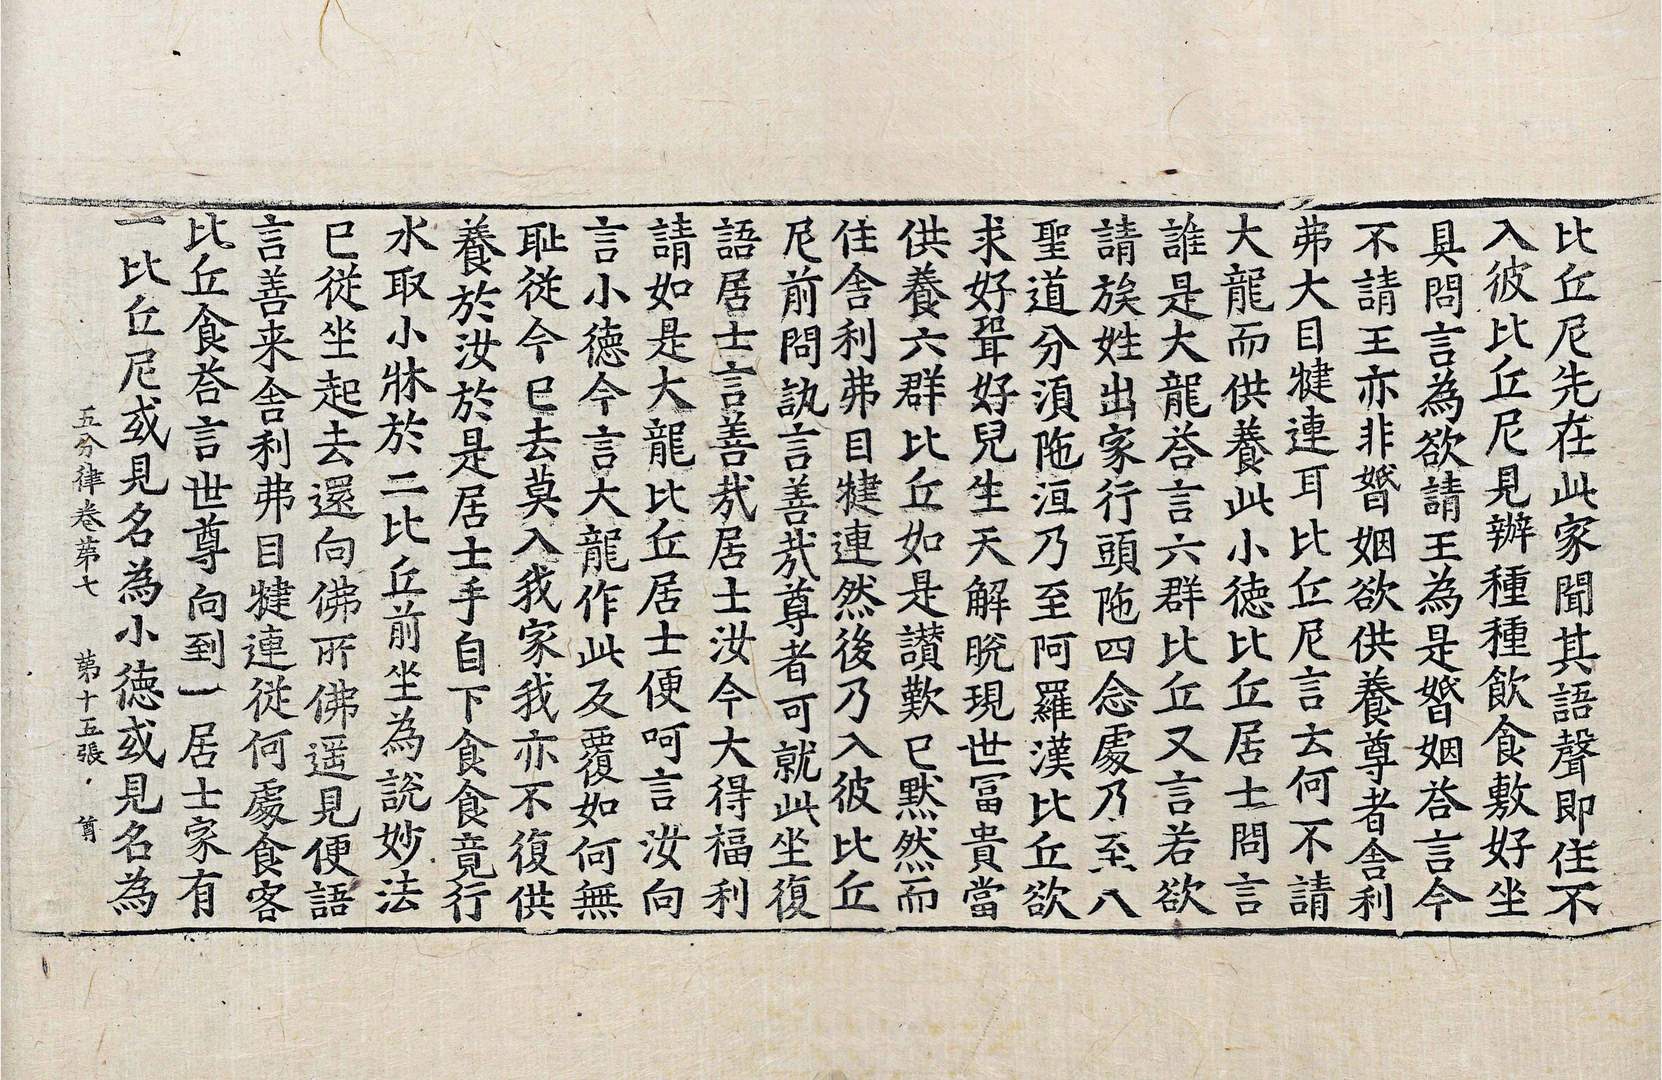 比丘尼先在此家聞其語聲即住不
入彼比丘尼見辦種種飲食敷好坐
具問言為欲請王為是婚姻荅言今
不請王亦非婚姻欲供養尊者舍利
弗大目揵連耳比丘尼言去何不請
大龍而供養此小德比丘居士問言
誰是大龍荅言六群比丘又言若欲
請族姓出家行頭陁四念處乃至八
聖道分湏陁洹乃至阿羅漢比丘欲
求好聟好兒生天解脫現世冨貴當
供養六群比丘如是讃歎已黙然而
住舍利弗目揵連然後乃入彼比丘
尼前問訊言善㢤尊者可就此坐復
語居士言善㢤居士汝今大得福利
請如是大龍比丘居士便呵言汝向
言小德今言大龍作此反覆如何無
耻從今已去莫入我家我亦不復供
養於汝於是居士手自下食食竟行
水取小牀於二比丘前坐為說妙法
已從坐起去還向佛所佛遥見便語
言善来舍利弗目揵連從何處食客
比丘食荅言世尊向到一居士家有
一比丘尼或見名為小德或見名為
五分律卷苐七 苐十五張